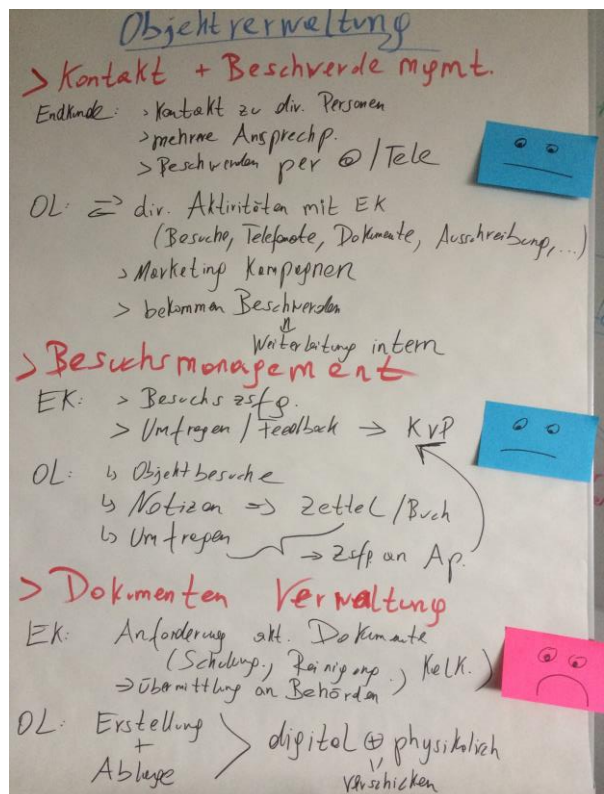 Objektverwaltung
> Kontakt + Beschwerde mgmt.
Endkunde: > Kontakt zu div. Personen
> mehrere Ansprechp.
> Beschwerden per @/Tele
OL: ⇄ div. Aktivitäten mit EK
(Besuche, Telefonate, Dokumente, Ausschreibung,...)
> Marketing Kampagnen
> bekommen Beschwerden
⇓
Weiterleitung intern
> Besuchsmanagement
EK: > Besuchs zsfg.
> Umfragen / Feedback → KVP
OL: ↳ Objektbesuche
↳ Notizen => Zettel/Buch
↳ Umfragen
→ Zsfg an Ap.
> Dokumenten Verwaltung
EK: Anforderung akt. Dokumente
(Schulung., Reinigung., Kalk.)
⇒ Übermittlung an Behörden
OL: Erstellung
+
Ablage
> digital ⊕ physikalisch
verschicken